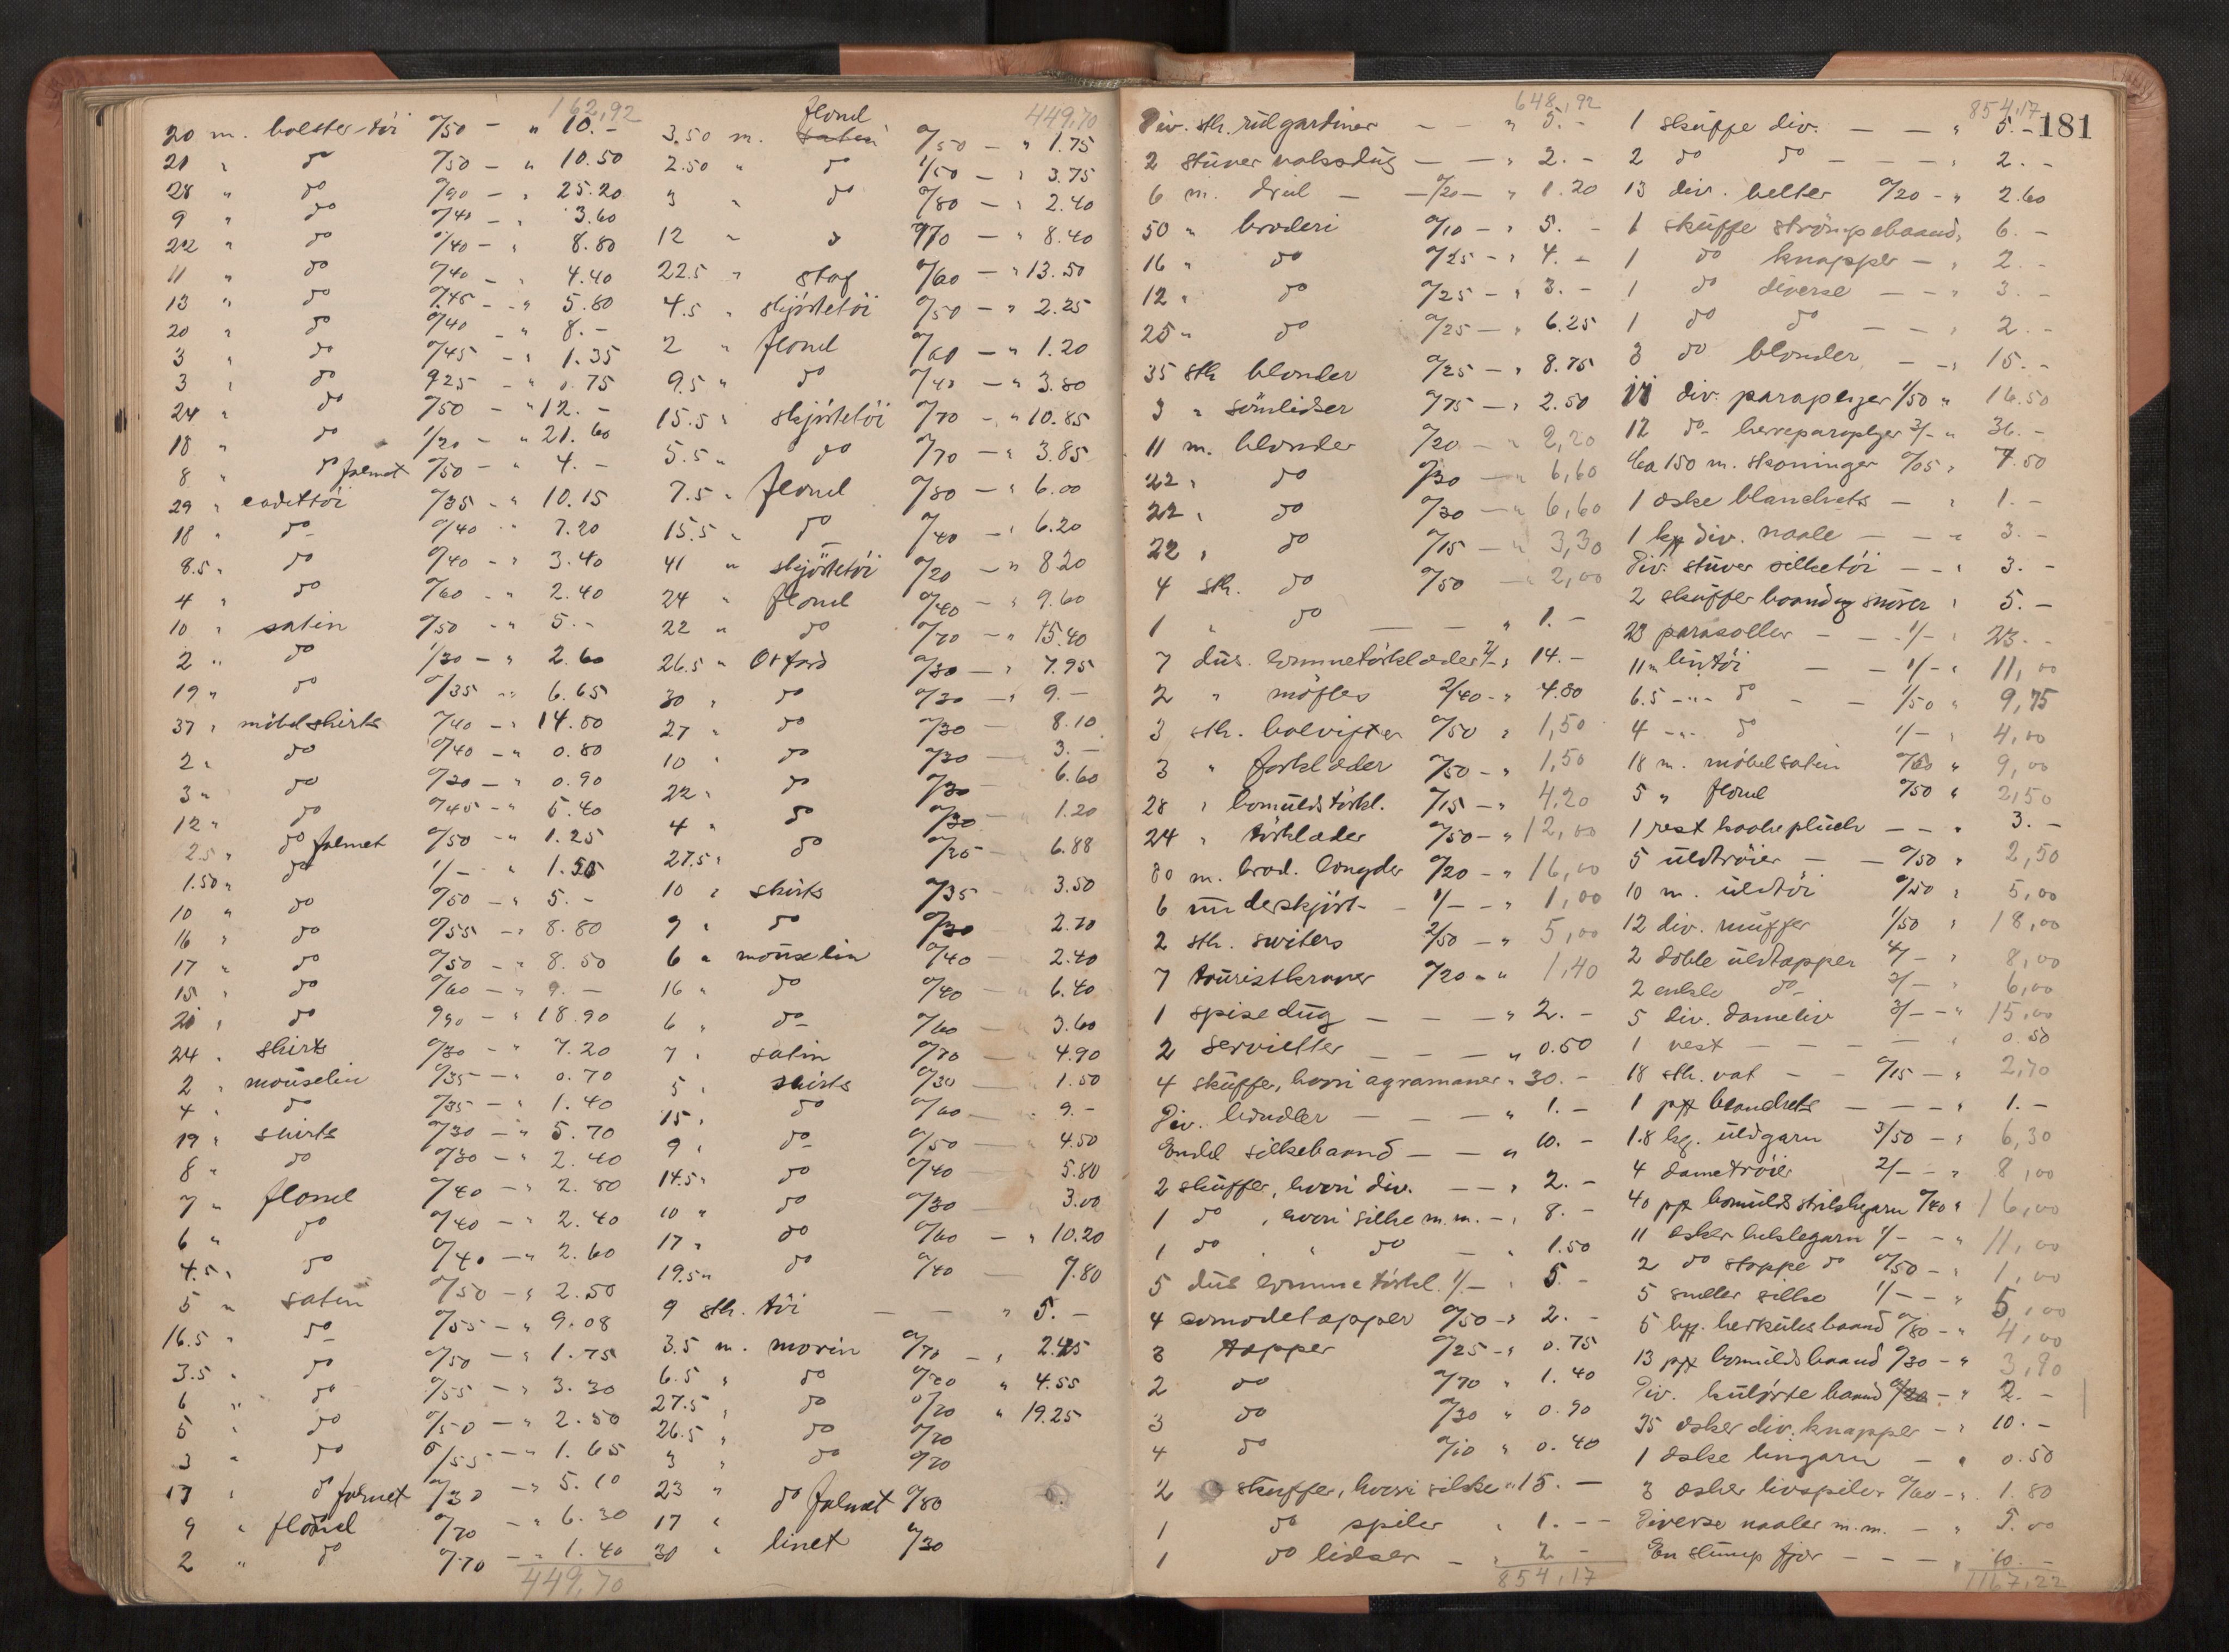 162,92
20 m. bolstertöi 0/50 - " 10.-
21 " do 0/50 - " 10.50
28 " do 0/90 - " 25.20
9 " do 0/40 - " 3.60
22 " do 0/40 - " 8.80
11 " do 0/40 - " 4.40
13 " do 0/45 - " 5.80
20 " do 0/40 - " 8.-
3 " do 0/45 - " 1.35
3 " do 0/25 - " 0.75
24 " do 0/50 - " 12.-
18 " do 1/20 - " 21.60
8 " do falmet 0/50 - " 4.-
29 " cadettöi 0/35 - " 10.15
18 " do 0/40 - " 7.20
8.5 " do 0/40 - " 3.40
4 " do 0/60 - " 2.40
10 " satin 0/50 - " 5.-
2 " do 1/30 - " 2.60
19 " do 0/35 - " 6.65
37 " möbelshirts 0/40 - " 14.80
2 " do 0/40 - " 0.80
3 " do 0/30 - " 0.90
12 " do 0/45 - " 5.40
2.5 " do falmet 0/50 - " 1.25
1.50 " do 1/- " 1.50
10 " do 0/50 - " 5.-
16 " do 0/55 - " 8.80
17 " do 0/50 - " 8.50
15 " do 0/60 - " 9.-
21 " do 0/90 - " 18.90
24 " shirts 0/30 - " 7.20
2 " mouselin 0/35 - " 0.70
4 " do 0/35 - " 1.40
19 " shirts 0/30 - " 5.70
8 " do 0/30 - " 2.40
7 " flonel 0/40 - " 2.80
6 " do 0/40 - " 2.40
4.5 " do 0/40 - " 2.60
5 " satin 0/50 - " 2.50
16.5 " do 0/55 - " 9.08
3.5 " do 0/50 - " 1.75
6 " do 0/55 - " 3.30
5 " do 0/50 - " 2.50
3 " do 0/55 - " 1.65
17 " do falmet 0/30 - " 5.10
9 " flonel 0/70 - " 6.30
2 " do 0/70 - " 1.40
449,70
449,70
3.50 m. satin flonel 0/50 - " 1.75
2.50 " do 1/50 - " 3.75
3 " do 0/80 - " 2.40
12 " do 0/70 - " 8.40
22.5 " stof 0/60 - " 13.50
4.5 " skjörtetöi 0/50 - " 2.25
2 " flonel 0/60 - " 1.20
9.5 " do 0/40 - " 3.80
15.5 " skjörtetöi 0/70 - " 10.85
5.5 " do 0/70 - " 3.85
7.5 " flonel 0/80 - " 6.00
15.5 " do 0/40 - " 6.20
41 " skjörtetöi 0/20 - " 8.20
24 " flonel 0/40 - " 9.60
22 " do 0/70 - " 15.40
26.5 " Oxford 0/30 - " 7.95
30 " do 0/30 - " 9.-
27 " do 0/30 - 8.10
10 " do 0/30 - 3.-
22 " do 0/30 6.60
4 " do 0/30 1.20
27.5 " do 0/25 - 6.88
10 " shirts 0/35 - 3.50
9 " do 0/30 2.70
6 " mouselin 0/40 - 2.40
16 " do 0/40 - 6.40
6 " do 0/60 - 3.60
7 " satin 0/70 - 4.90
5 " shirts 0/30 - 1.50
15 " do 0/60 - 9.-
9 " do 0/50 - 4.50
14.5 " do 0/40 - 5.80
10 " do 0/30 - 3.00
17 " do 0/60 - " 10.20
19.5 " do 0/40 - 7.80
9 stk. töi - - " 5.-
3.5 m. morin 0/70 - " 2.45
6.5 " do 0/70 " 4.55
27.5 " do 0/70 " 19.25
26.5 " do 0/70
3 " do 0/70
23 " do falmet 0/80
17 "
30 " linet 0/30
648,92
Div. stk. rulgardiner - - " 5.-
2 stuver voksdug - - " 2.-
6 m. dreil - 0/20 - " 1.20
50 " broderi 0/10 - " 5.-
16 " do 0/25 - " 4.-
12 " do 0/25 - " 3.-
25 " do 0/25 - " 6.25
35 stk blonder 0/25 - " 8.75
3 " sömlidser 0/75 - " 2.50
11 m. blonder 0/20 - " 2,20
22 " do 0/30 - " 6,60
22 " do 0/30 - " 6,60
22 " do 0/15 - " 3,30
4 stk. do 0/50 - " 2,00
1 " do - - " 1.-
7 dus. lommetörklæder 2/- " 14.-
2 " möfles 2/40 - " 4.80
3 stk. bolvifter 0/50 " 1,50
3 " forklæder 0/50 - " 1,50
28 " bomuldstörkl. 0/15 - " 4,20
24 " törklæder 0/50 - " 12,00
80 m. brod. longder 0/20 - " 16,00
6 underskjört - 1/- - " 1,00
2 stk. switers 2/50 - " 5,00
7 touristkraver 0/20 - " 1,40
1 spisedug - - - " 2.-
2 servietter - - - " 0.50
4 skuffer, hvori agramaner " 30.-
Div. bändler - - - " 1.-
Endel silkebaand - - " 10.-
2 skuffer, hvori div. - - " 2.-
1 do , hvori silke m.m. - " 8.-
1 do " " do - " 1.50
5 dus lommetörkl. 1/- " 5.-
4 comodetapper 0/50 - " 2.-
3 tapper 0/25 - " 0.75
2 do 0/70 " 1.40
3 do 0/30 " 0.90
4 do 0/10 " 0.40
2 skuffer, hvori silke " 15.-
1 do spiler " 1.-
1 do lidser - " 2.-
854,17
854,17
181
1 skuffe div. - - " 5.-
2 do do - - - " 2.-
13 div. belter 0/20 - " 2.60
1 skuffe strömpebaand " 6.-
1 do knapper - " 2.-
1 do diverse - - " 3.-
1 do do - - " 2.-
3 do blonder - - " 15.-
11 div. paraplyer 1/50 " 16.50
12 do herreparaplyer 3/- " 36.-
Ca 150 m. skoninger 0/05 " 7.50
1 æske blanchets - " 1.-
1 kp div. naale - - " 3.-
Div. stuver silketöi - - " 3.-
2 skuffer baand og snörer " 5.-
23 parasoller - - 1/- " 23.-
11 m lintöi - - 1/- " 11,00
6.5 - " - do - - 1/50 " 9,75
4 - " - do 1/- " 4,00
18 m. möbelsatin 0/50 " 9,00
5 " flonel 0/50 " 2,50
1 rest kaabeplüch - - " 3.-
5 uldtröier - - 0/50 " 2,50
10 m. uldtöi 0/50 " 5,00
12 div. muffer 1/50 " 18,00
2 doble uldtapper 4/- " 8,00
2 enkle do 3/- " 6,00
5 div. dameliv 3/- - " 15,00
1 vest - - - - " 0.50
18 stk. vat - - 0/15 - " 2,70
1 pk blanchets - - - " 1.-
1.8 kg. uldgarn 3/50 - " 6,30
4 dametröier 2/- - " 8,00
40 pk bomulds strikkegarn 0/40 " 16,00
11 æsker heklegarn 1/- - " 11,00
2 do stoppe do 0/50 - " 1,00
5 sneller silke 1/- - " 5,00
5 kp. herkulesbaand 0/80 - " 4,00
13 pk bomuldsbaand 0/30 - " 3,90
Div. kulörte baand 0/20 - " 2.-
35 æsker div. knapper - " 10.-
1 æske lingarn - " 0.50
3 æsker livspiler 0/60 - " 1.80
Diverse naaler m.m. - " 5.00
En slump fjær - - - " 10.-
1167,22